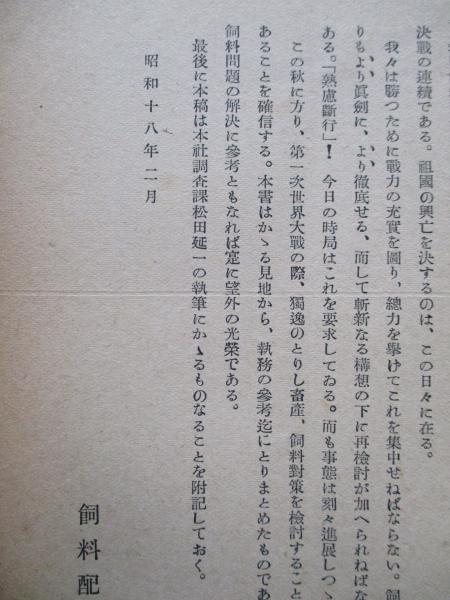 決戰の連續である。祖國の興亡を決するのは、この日々に在る。
我々は勝つために戰力の充實を圖り、總力を擧げてこれを集中せねばならない。飼
りもより眞劍に、より徹底せる、而して斬新なる構想の下に再檢討が加へられねばな
ある。「熟慮斷行」！　今日の時局はこれを要求してゐる。而も事態は刻々進展しつゝ
この秋に方り、第一次世界大戰の際、獨逸のとりし畜產、飼料對策を檢討すること
あることを確信する。本書はかゝる見地から、執務の參考迄にとりまとめたものであ
飼料問題の解決に參考ともなれば寔に望外の光榮である。
最後に本稿は本社調査課松田延一の執筆にかゝるものなることを附記しておく。
昭和十八年二月
飼料配